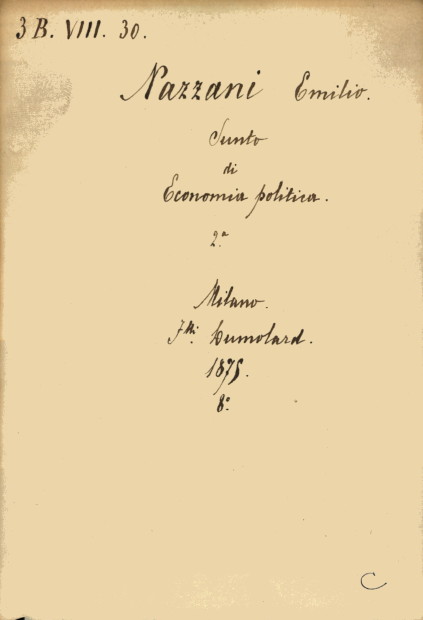 3 B. VIII. 30.
Nazzani Emilio.
Sunto
di
Economia politica.
2.a
Milano.
F.lli Dumolard.
1875.
8.°
C